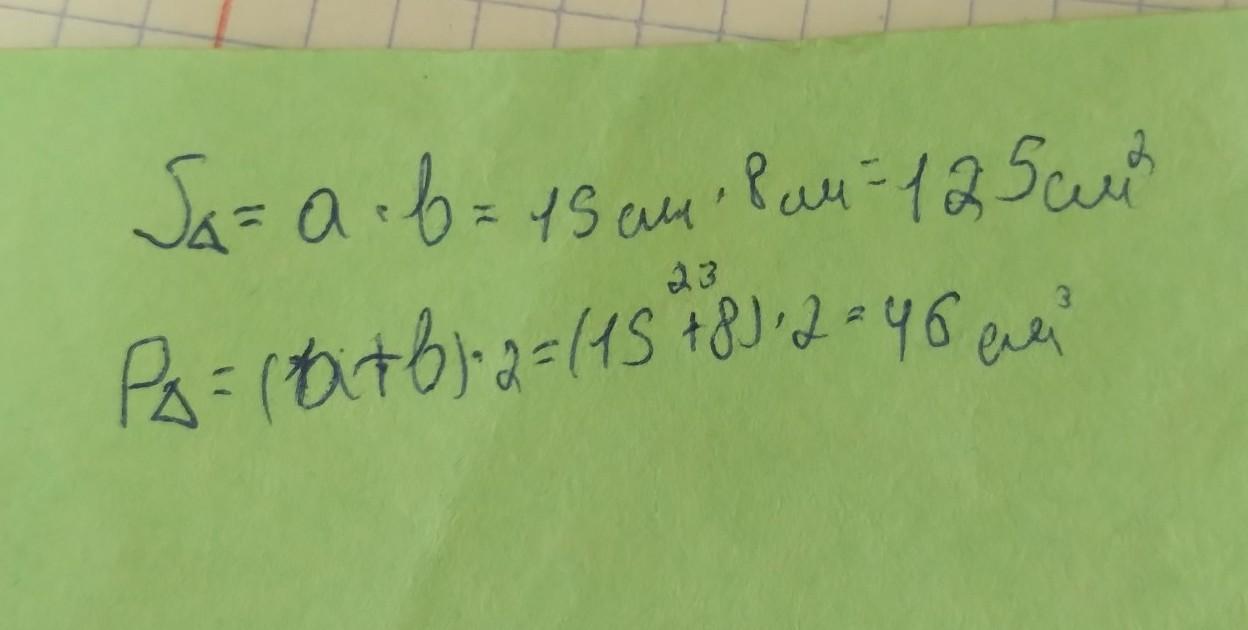 S△ = a · b = 15 см · 8 см = 125 см²
P△ = (a + b) · 2 = (15 + 8) · 2 = 46 см³
23